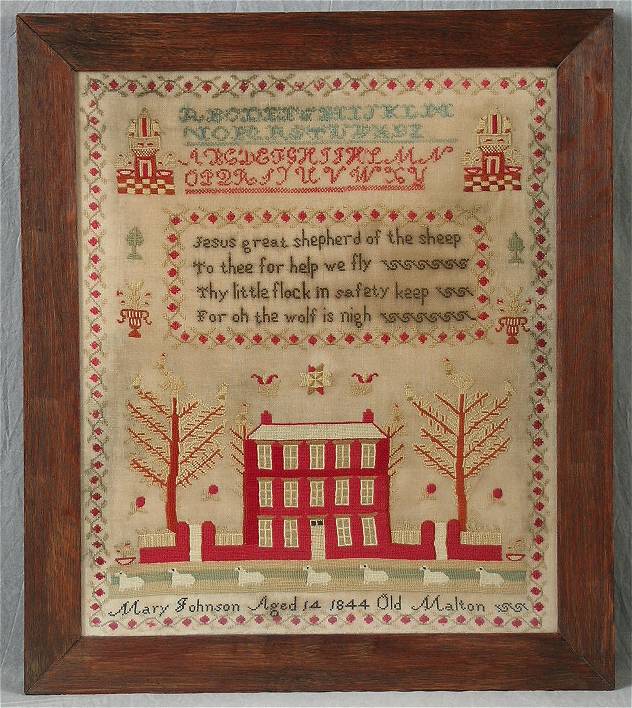 ABCDEFGHIJKLM
NOPQRSTUVXYZ
ABCDEFGHIJKLMN
OPQRSTUVWXY
Jesus great shepherd of the sheep
To thee for help we fly
Thy little flock in safety keep
For oh the wolf is nigh
Mary Johnson Aged 14 1844 Old Malton